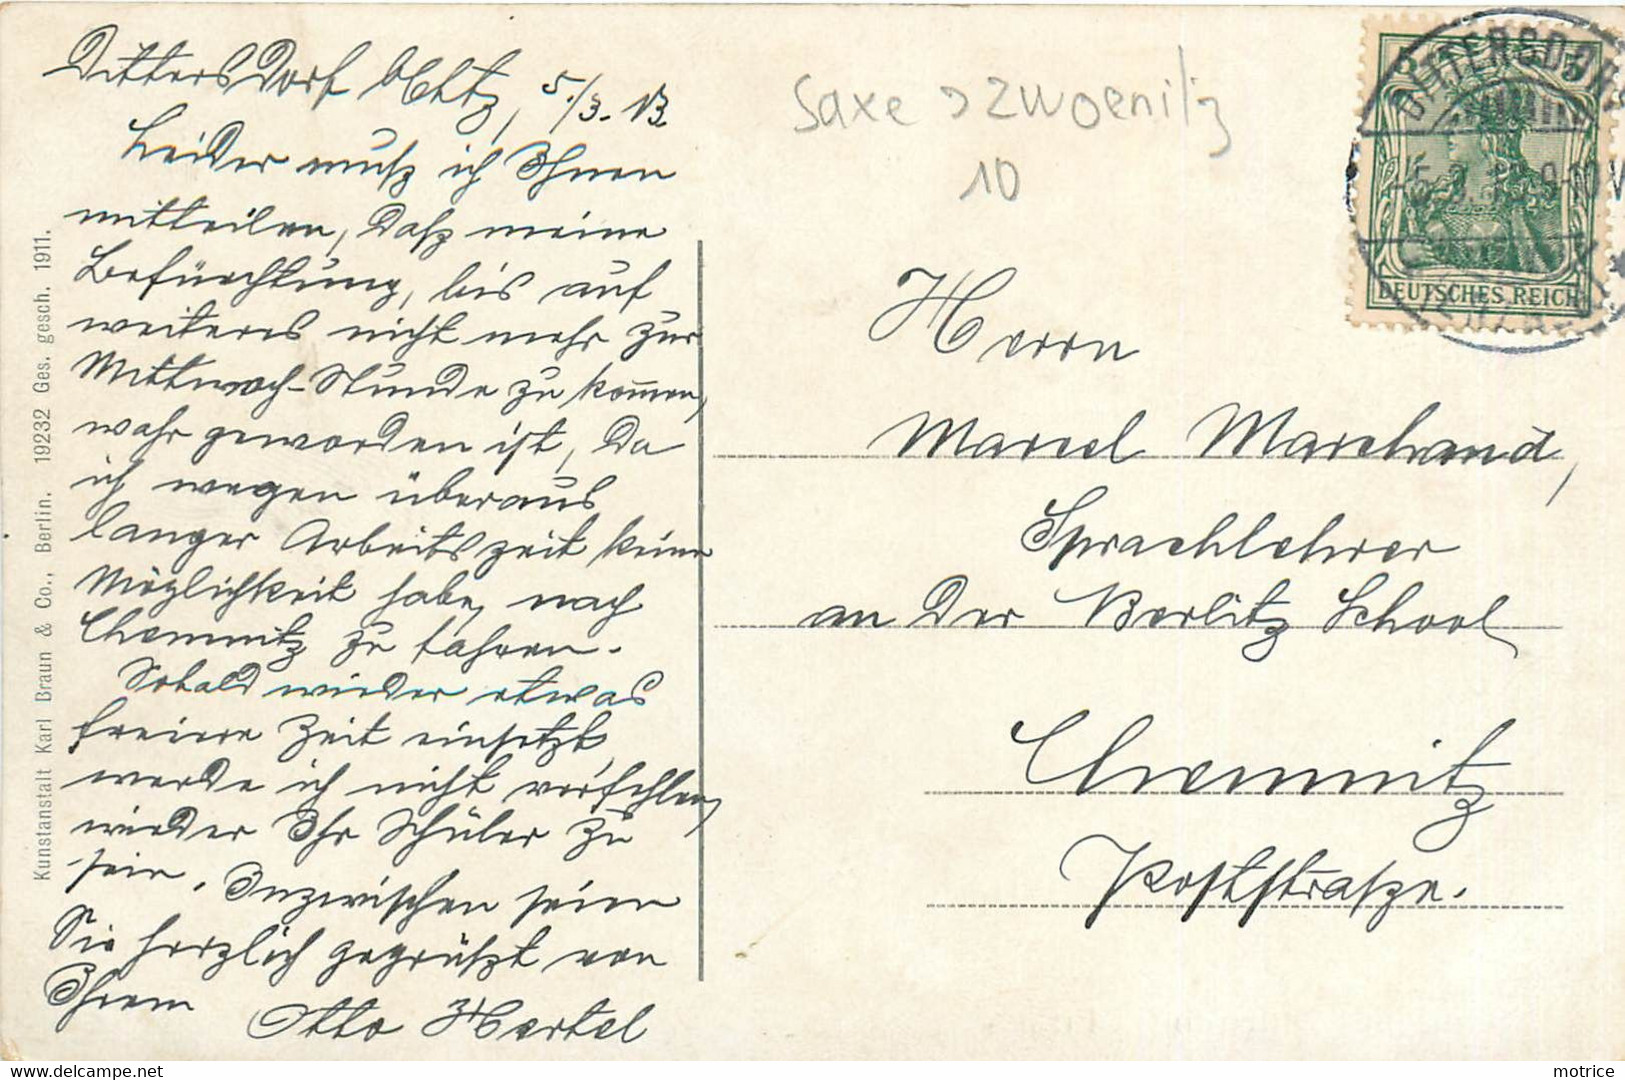 Dittersdorf b/Chtz, 5./3. 13.
Leider muß ich Ihnen
mitteilen, daß meine
Befürchtung, bis auf
weiteres nicht mehr zur
Mittwoch-Stunde zu kom̄en,
wahr geworden ist, da
ich wegen überaus
langer Arbeitszeit keine
Möglichkeit habe, nach
Chemnitz zu fahren.
Sobald wieder etwas
freiere Zeit einsetzt,
werde ich nicht verfehlen,
wieder Ihr Schüler zu
sein. Inzwischen seien
Sie herzlich gegrüßt von
Ihrem Otto Hertel
Kunstanstalt Karl Braun & Co., Berlin. 19232 Ges. gesch. 1911.
Saxe > Zwoenitz
10
DITTERSDORF
5.3.13. 9-10V
DEUTSCHES REICH
Herrn
Marcel Marchand,
Sprachlehrer
an der Berlitz School
Chemnitz
Poststraße.
motrice